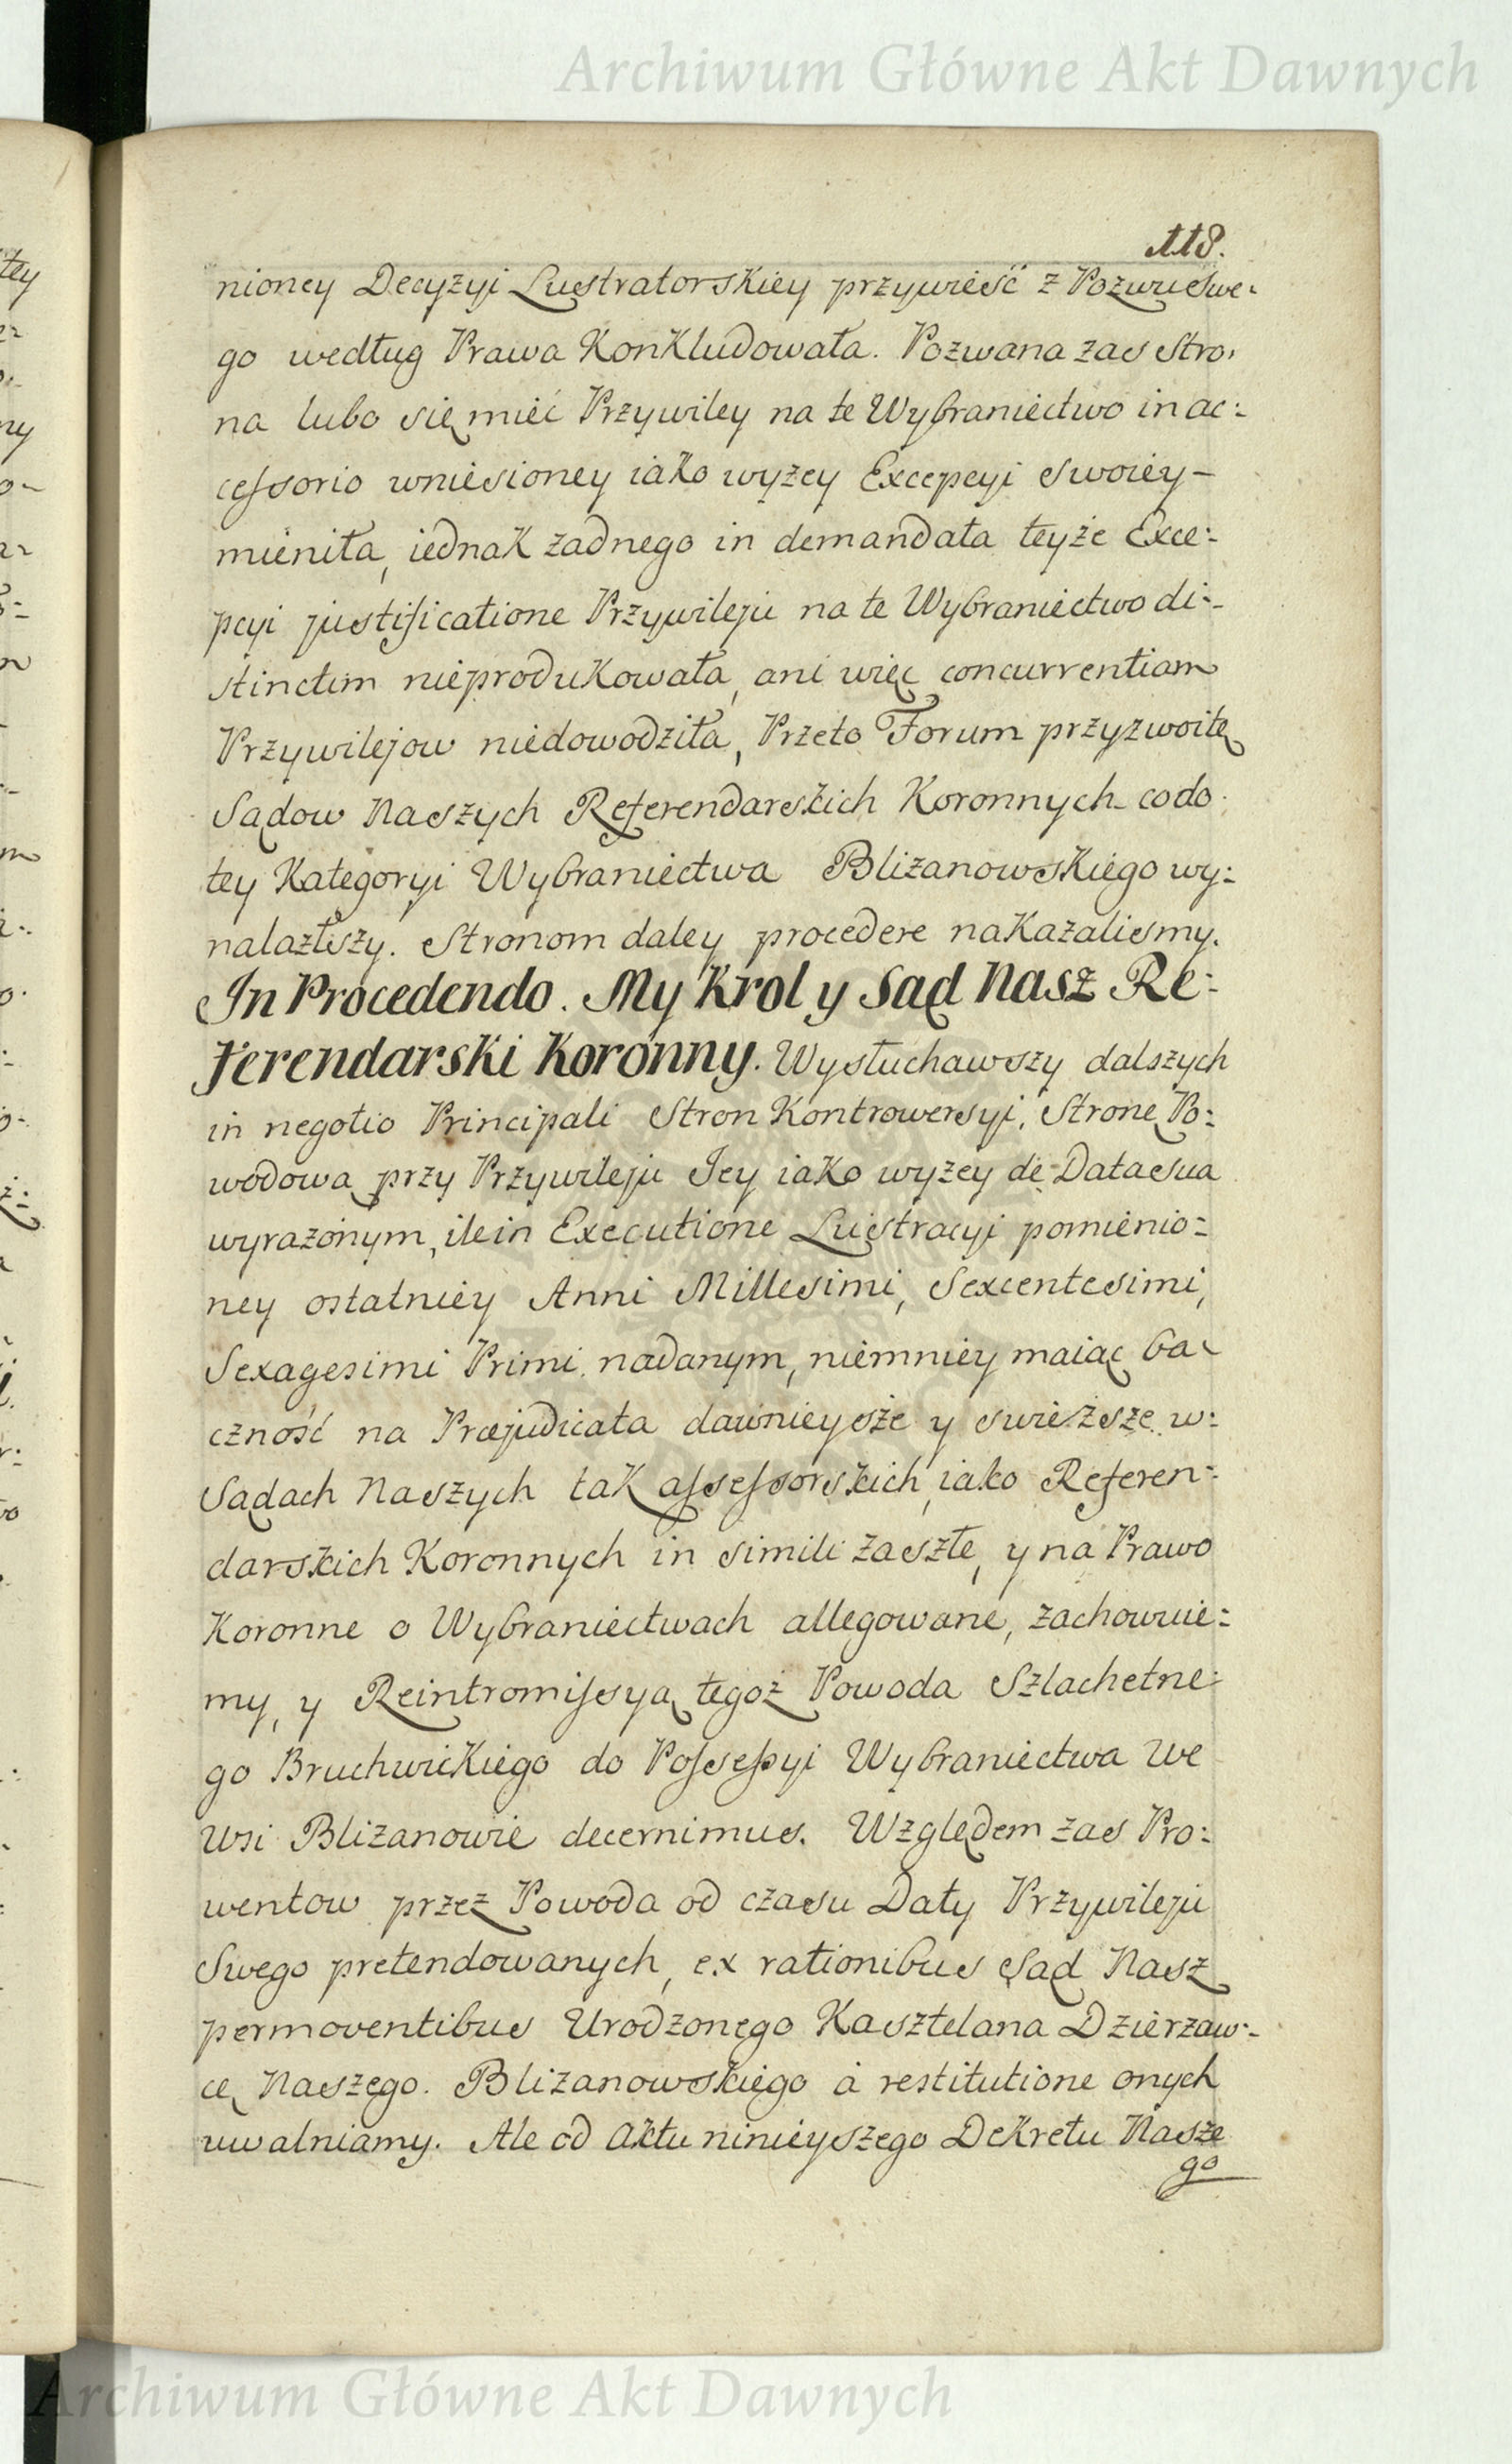 Archiwum Główne Akt Dawnych
118.
nioney Decyzyi Lustratorskiey przywieść z Pozwu Swe-
go według Prawa Konkludowała. Pozwana zas Stro-
na lubo się mieć Przywiley na te Wybraniectwo in ac:
cessorio wniesioney iako wyżey Excepcyi Swoiey -
mieniła, iednak żadnego in demandata teyże Exce:
pcyi justificatione Przywileju na te Wybraniectwo di:
stinctim nieprodukowała, ani więc concurrentiam
Przywilejow niedowodziła, Przeto Forum przyzwoitę
Sądow Naszych Referendarskich Koronnych co do
tey Kategoryi Wybraniectwa Bliżanowskiego wy:
nalazłszy. Stronom daley procedere nakazaliśmy.
In Procedendo. My Krol y Sąd Nasz Re:
ferendarski Koronny. Wysłuchawszy dalszych
in negotio Principali Stron Kontrowersyi, Stronę Po:
wodową przy Przywileju Jey iako wyżey de Data sua
wyrażonym, ile in Executione Lustracyi pomienio:
ney ostatniey Anni Millesimi, Sexcentesimi,
Sexagesimi Primi nadanym, niemniey maiąc ba-
czność na Præjudicata dawnieysze y swieższe w:
Sądach Naszych tak assessorskich, iako Referen:
darskich Koronnych in simili zaszłe, y na Prawo
Koronne o Wybraniectwach allegowane, zachowuie:
my, y Reintromissyą tegoż Powoda Szlachetne:
go Bruchwickiego do Possessyi Wybraniectwa we
Wsi Bliżanowie decernimus. Względem zas Pro:
wentow przez Powoda od czasu Daty Przywileju
Swego pretendowanych, ex rationibus Sąd Nasz
permoventibus Urodzonego Kasztelana Dzierżaw:
cę Naszego Bliżanowskiego à restitutione onych
uwalniamy. Ale od Aktu ninieyszego Dekretu Nasze
go
Archiwum Główne Akt Dawnych